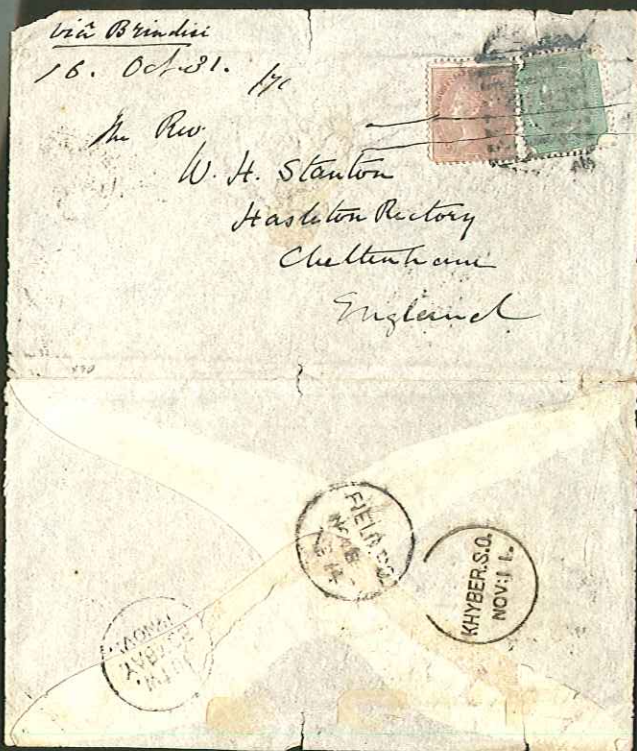 via Brindisi
16. Oct. 31.
The Rev.
W. H. Stanton
Hasleton Rectory
Cheltenham
England
FIELD P.O.
KHYBER.S.O.
NOV:11.
BOMBAY